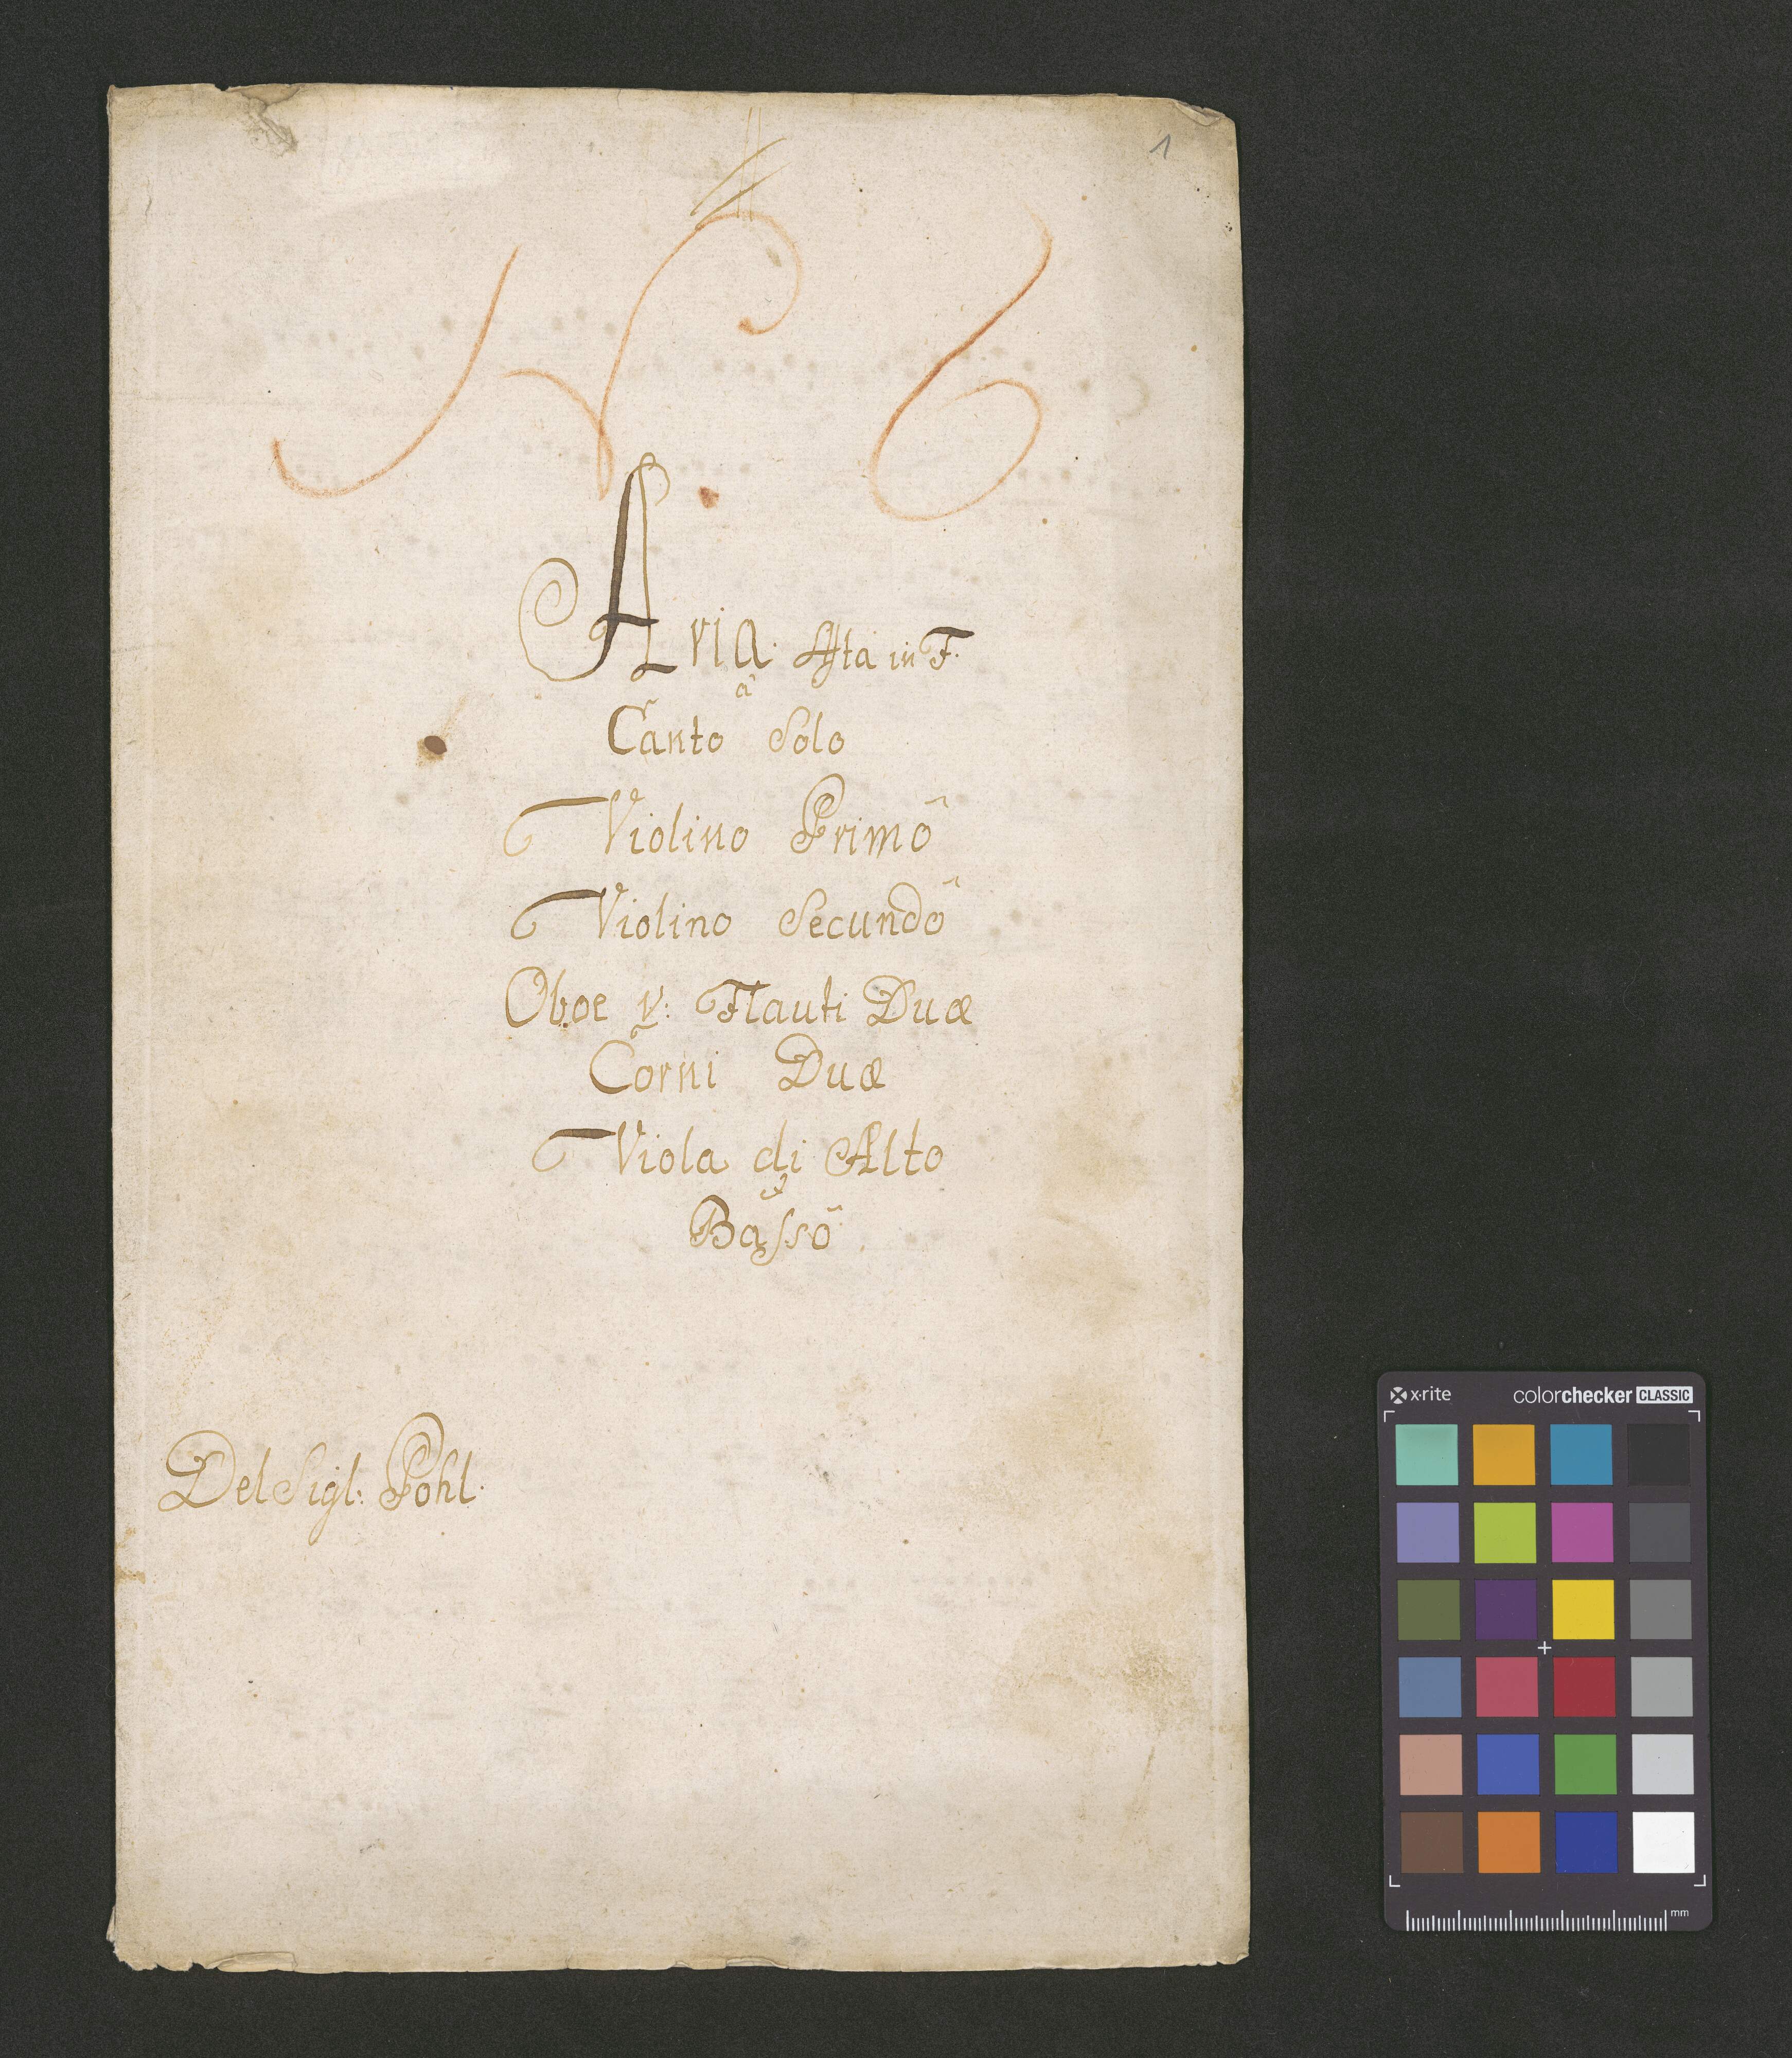 1
N. 6
Aria. 4ta in F.
â
Canto Solo
Violino Primo
Violino Secundo
Oboe v: Flauti Duæ
Corni Duæ
Viola di Alto
Basso
Del Sigl: Pohl.
x·rite colorchecker CLASSIC
mm